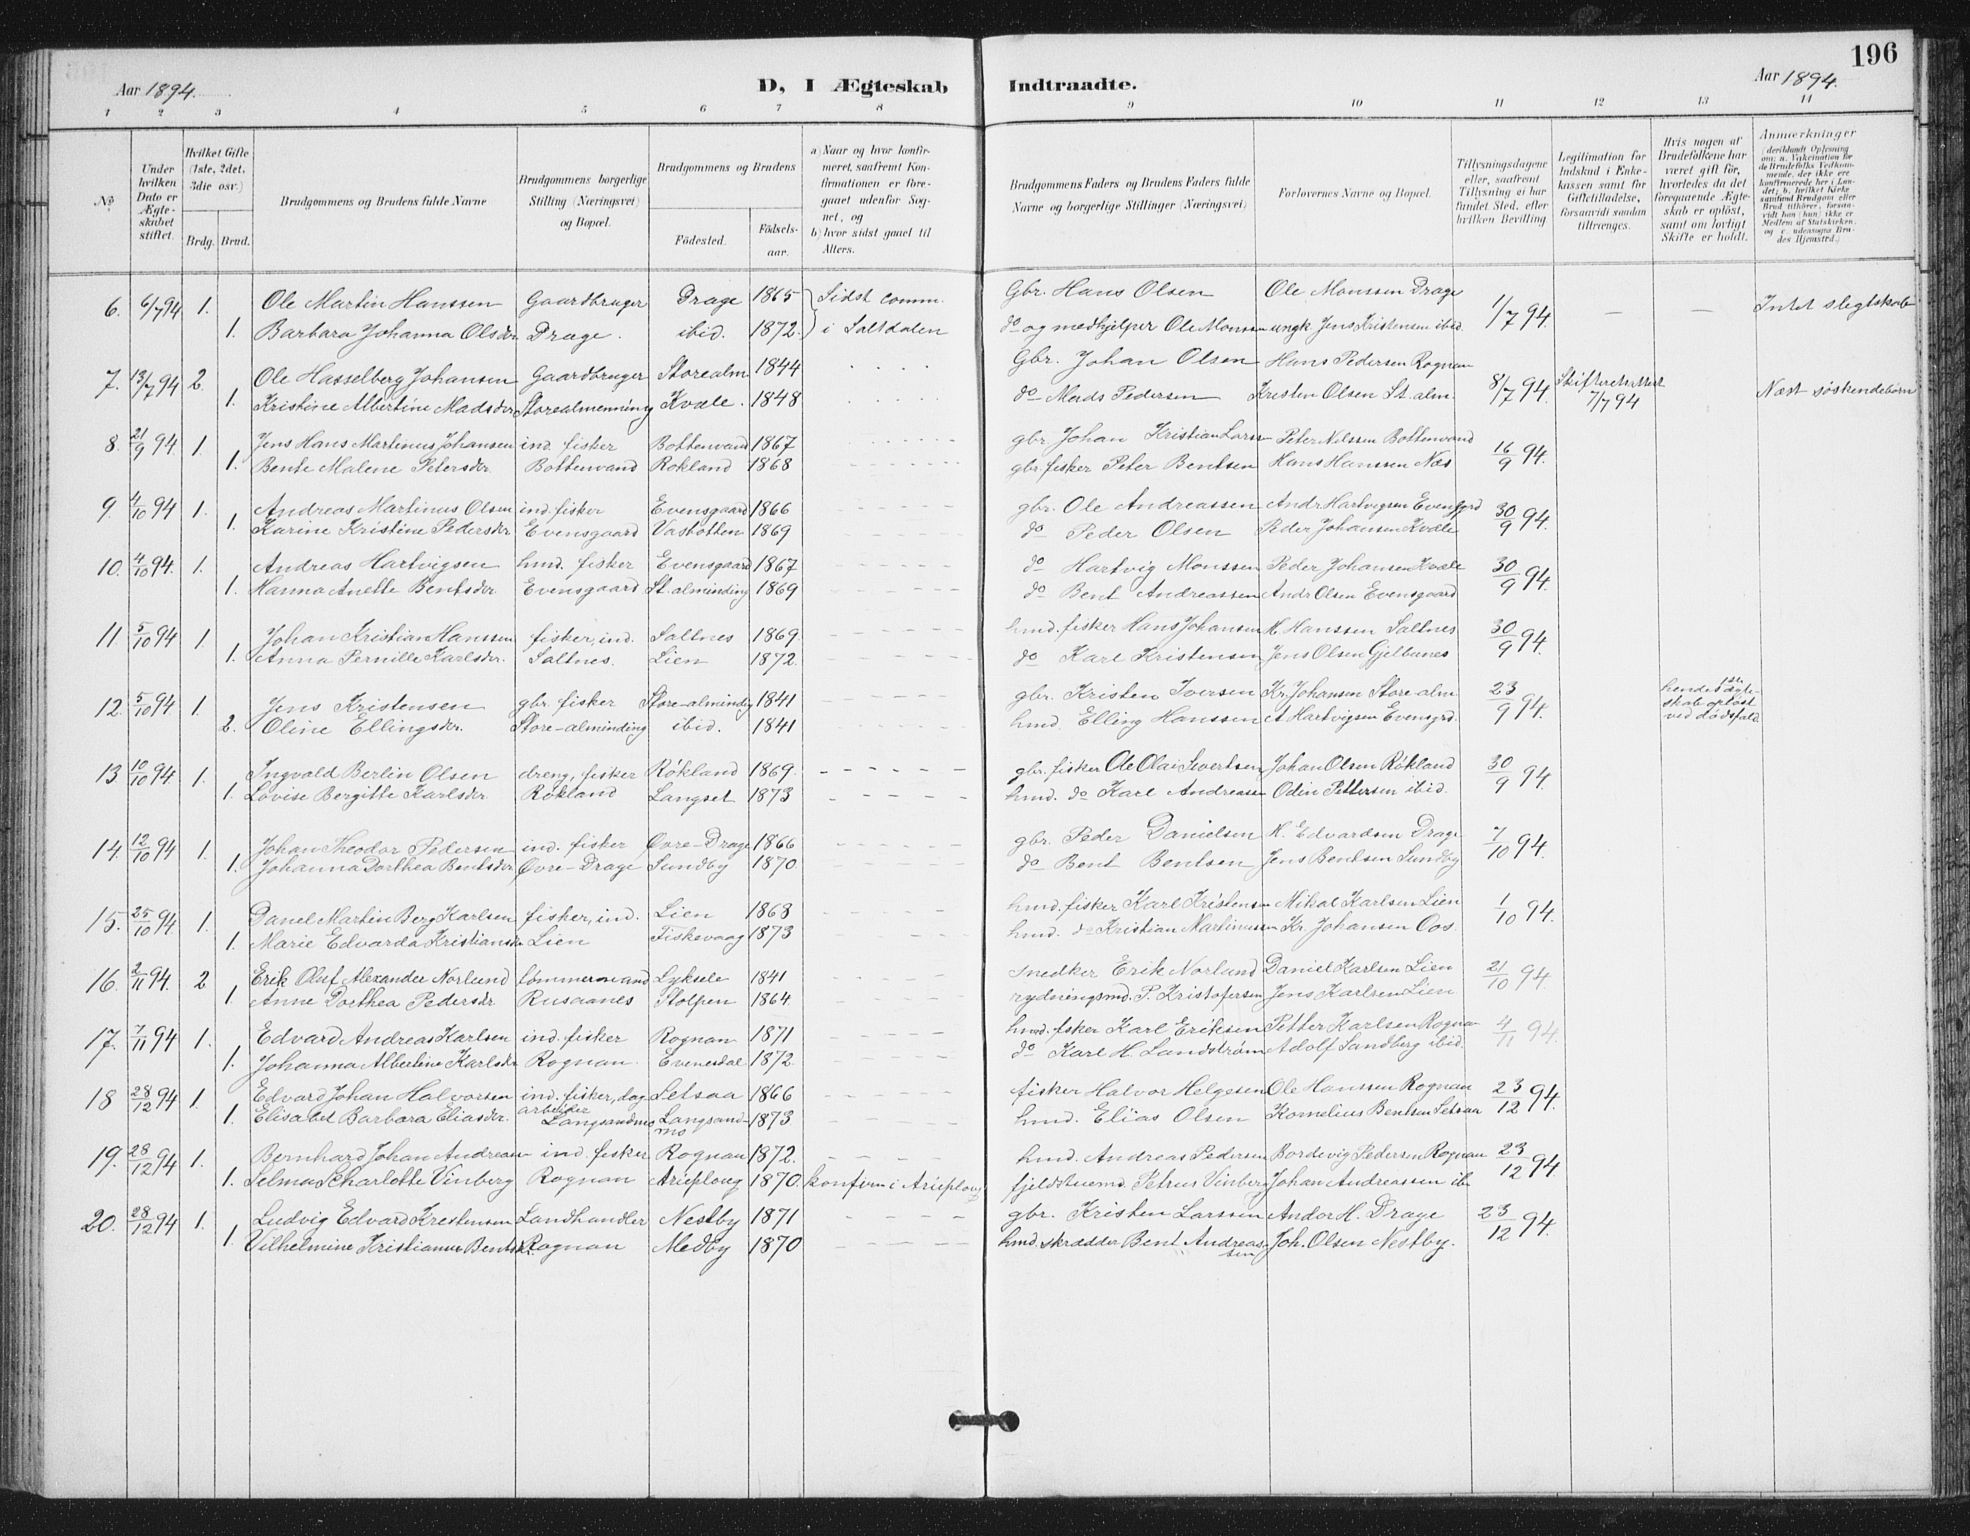 196
Aar 1894.
D, I Ægteskab Indtraadte.
Aar 1894.
1 2 3 4 5 6 7 8 9 10 11 12 13 14
No.
Under hvilken Dato er Ægteskabet stiftet.
Hvilket Gifte (1ste, 2det, 3die osv.)
Brdg. Brud.
Brudgommens og Brudens fulde Navne
Brudgommens borgerlige Stilling (Næringsvei) og Bopæl.
Brudgommens og Brudens
Fødested. Fødselsaar.
a) Naar og hvor konfirmeret, saafremt Konfirmationen er foregaaet udenfor Sognet, og
b) hvor sidst gaaet til Alters.
Brudgommens Faders og Brudens Faders fulde Navne og borgerlige Stillinger (Næringsvei)
Forlovernes Navne og Bopæl.
Tillysningsdagene eller, saafremt Tillysning ei har fundet Sted, efter hvilken Bevilling.
Legitimation for Indskud i Enkekassen samt for Giftetilladelse, forsaavidt saadan tiltrænges.
Hvis nogen af Brudefolkene har været gift før, hvorledes da det foregaaende Ægteskab er opløst, samt om lovligt Skifte er holdt.
Anmærkninger (deriblandt Oplysning om: a. Vakcination for de Brudefolks Vedkommende, der ikke ere konfirmerede her i Landet; b. hvilket Kirkesamfund Brudgom eller Brud tilhører, forsaavidt han (hun) ikke er Medlem af Statskirken, og c. udensogns Brudes Hjemsted.)
6. 6/7 94 1. Ole Martin Hanssen Gaardbruger Drage 1865 Sidst comm. Gbr. Hans Olsen Ole Monssen Drage 1/7 94. — — Intet slegtskab
1. Barbara Johanna Olsdr Drage. ibid. 1872. i Saltdalen do og medhjelper Ole Monssen ungk Jens Kristensen ibid.
7. 13/7 94 2. Ole Hasselberg Johansen Gaardbruger Storealm 1844 Gbr. Johan Olsen Hans Pedersen Rognan 8/7 94. Skifteattest 7/7 94 Næst søskendebørn
1. Kristine Albertine Madsdr Storealmenning Kvæle. 1848 do Mads Pedersen Kristen Olsen St. alm.
8. 21/9 94 1. Jens Hans Martinus Johansen ind. fisker Bottenvand 1867 gbr. Johan Kristian Larssn Peter Nilssen Bottenvand 16/9 94.
1. Bente Malene Petersdr Bottenvand Rokland 1868 gbr. fisker Peter Bentsen Hans Hanssen Næs
9. 4/10 94 1. Andreas Martinus Olsen ind. fisker Evensgaard 1866 gbr. Ole Andreassen Andr Hartvigsen Evensgrd 30/9 94.
1. Karine Kristine Pedersdr Evensgaard Vasbotten 1869 do Peder Olsen Peder Johansen Kvæle
10. 4/10 94. 1. Andreas Hartvigsen hmd. fisker Evensgaard 1867 do Hartvig Monssen Peder Johansen Kvæle 30/9 94.
1. Hanna Anette Bentsdr Evensgaard St. alminding 1869 do Bent Andreassen Andr Olsen Evensgaard
11. 5/10 94 1. Johan Kristian Hanssen fisker, ind. Saltnes 1869 hmd. fisker Hans Johansen H. Hanssen Saltnes 30/9 94.
1. Anna Pernille Karlsdr. Saltnes. Lien 1872. do Karl Kristensen Jens Olsen Gjelbunes
12. 5/10 94 1. Jens Kristensen gbr. fisker Store-alminding 1841 gbr. Kristen Iversen Kr. Johansen Store-alm. 23/9 94. hendes 1ste ægteskab opløst ved dødsfald.
2. Oline Ellingsdr. Store-alminding ibid. 1841 hmd. Elling Hanssen A Hartvigsen Evensgrd.
13 10/10 94 1. Ingvald Berlin Olsen dreng, fisker Røkland 1869. gbr. fisker Ole Olai Sivertsen Johan Olsen Røkland 30/9 94.
1. Lovise Bergitte Karlsdr Røkland Langset 1873 hmd. do Karl Andreassn Odin Pettersen ibid.
14. 12/10 94 1. Johan Theodor Pedersen ind. fisker Øvre-Drage 1866 gbr. Peder Danielsen H. Edvardsen Drage 7/10 94.
1. Johanna Dorthea Bentsdr Øvre-Drage Sundby 1870 do Bent Bentsen Jens Bentsen Sundby
15. 25/10 94 1. Danel Martin Berg Karlsen fisker, ind. Lien 1868 hmd. fisker Karl Kristensn Mikal Karlsen Lien 1/10 94.
1. Marie Edvarda Kristiansdr Lien Fiskevaag 1873 hmd. do Kristian Martinussen Kr. Johansen Oos.
16. 2/11 94. 2 Erik Oluf Alexander Norlund tømmermand Lyksele 1841 snedker Erik Norland Daniel Karlsen Lien 21/10 94.
1 Anne Dorthea Pedersdr Rusaanes Stolpen 1864 rydningsmd. P. Kristofersen Jens Karlsen Lien
17. 7/11 94 1. Edvard Andreas Karlsen ind. fisker Rognan 1871 hmd. fsker Karl Eriksen Petter Karlsen Rognan 4/11 94.
1. Johanna Albertine Karlsdr Rognan. Evenesdal 1872. do Karl H. Landstrøm Adolf Sandberg ibid.
18 28/12 94 1. Edvard Johan Halvorsen ind. fisker, dagarbeider Setsaa 1866 fisker Halvor Helgesen Ole Hanssen Rognan 23/12 94.
1. Elisabet Barbara Eliasdr. Langsandmo Langsandmo 1873 hmd. Elias Olsen Kornelius Bentsen Setsaa
19. 28/12 94 1. Bernhard Johan Andreasn ind. fisker Rognan 1872. hmd. Andreas Pedersen Bordevig Pedersen Rognan 23/12 94.
1. Selma Scharlotte Vinberg Rognan Arieploug 1870. konfirm i Arieploug fjeldstuemd. Petrus Vinberg Johan Andreassen ib
20. 28/12 94 1. Ludvig Edvard Krestensen Landhandler Nestby 1871 gbr. Kristen Larssen Andor H. Drage 23/12 94.
1. Vilhelmine Kristianne Bentsdr. Rognan Medby 1870 hmd. skrædder Bent Andreassen Joh. Olsen Nestby.